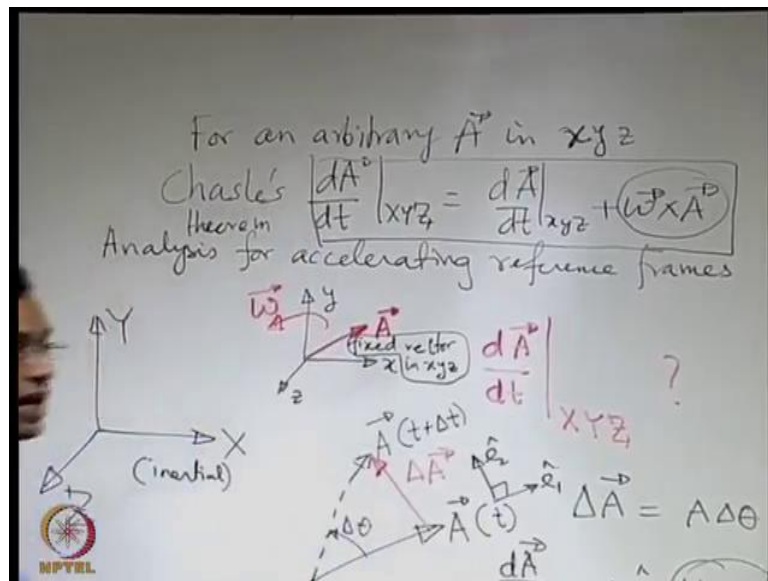 For an arbitrary A⃗ in xyz
Chasle's theorem dA⃗/dt |XYZ = dA⃗/dt |xyz + ω⃗ × A⃗
Analysis for accelerating reference frames
Y
X
Z
(inertial)
ω⃗
y
A⃗
fixed vector
x in xyz
z
dA⃗/dt |XYZ ?
A⃗ (t+Δt)
ΔA⃗
ê₂
ê₁
Δθ
A⃗ (t)
ΔA⃗ = AΔθ
dA⃗
NPTEL